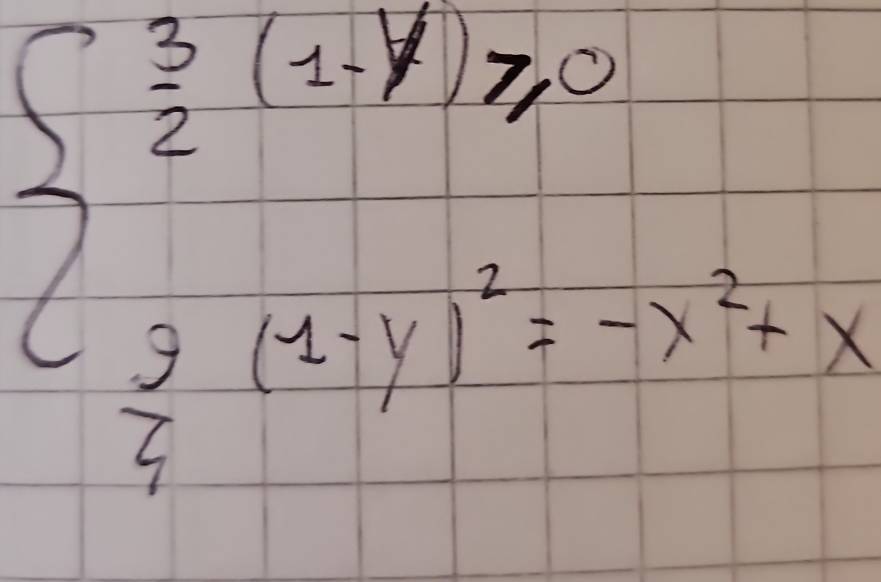 3/2 (1-y) ≥ 0
9/4 (1-y)² = -x² + x